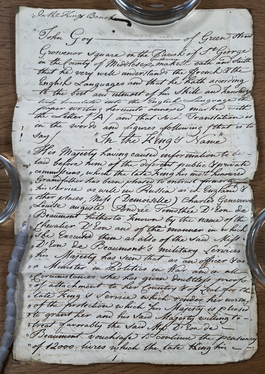 In the Kings Bench
John Goy of Green Street
Grosvenor Square in the Parish of St. George
in the County of Middlesex maketh oath and saith
that he very well understands the French &
English Languages and that he hath according
to the best and utmost of his Skill and knowledge
translated into the English Language the
Paper writing hereunto annexed marked with
the Letter "A" and that such Translation is
in the words and figures following that is to
say
In the King's Name
His Majesty having caused information to be
laid before him of the different public
commissions which the late King his most honored
Grandfather has been pleased to
his Service as well in Russia as in England &
other places Miss (Demoiselle) Charles Genevieve
Louise Auguste Andrée Timothée D'Eon de
Beaumont hitherto known by the name of the
Chevalier D'Eon and of the manner in which
She Executed them as also of the said Miss
D'Eon de Beaumont's military Services
his Majesty has seen that as an officer & as
a Minister in Politics in War and in
she has given
of attachment to her Country & of Zeal for the
late King's Service which render her worthy
of the protection which his Majesty is pleased
to grant her and his said Majesty willing to
treat favorably the said Miss D'Eon de
Beaumont vouchsafes to continue the
of 12000 livres which the late King his